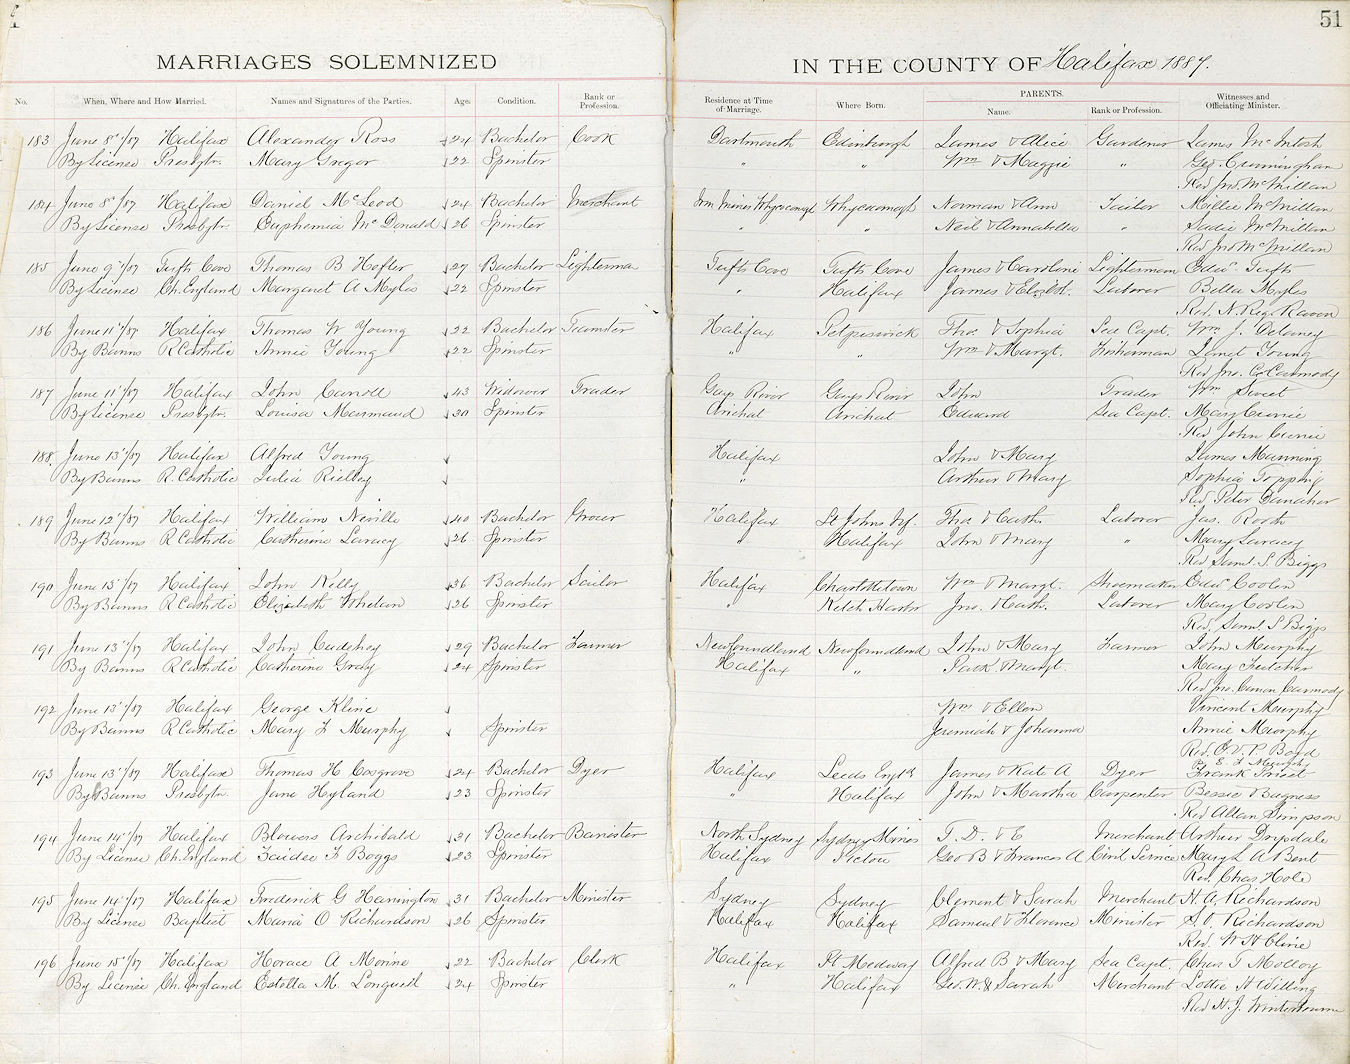 51
MARRIAGES SOLEMNIZED IN THE COUNTY OF Halifax 1887.
No. When, Where and How Married. Names and Signatures of the Parties. Age. Condition. Rank or Profession. Residence at Time of Marriage. Where Born. PARENTS. Name. Rank or Profession. Witnesses and Officiating Minister.
183 June 8th/87 Halifax Alexander Ross 24 Bachelor Cook Dartmouth Edinburgh James & Alice Gardener James McIntosh
By License Presbytn. Mary Gregor 22 Spinster " " Wm & Maggie " Geo. Cunningham
Rev Jno. McMillan
184 June 8th/87 Halifax Daniel McLeod 24 Bachelor Merchant Whycocomagh Whycocomagh Norman & Ann Tailor Millie McMillan
By License Presbytn. Euphemia McDonald 26 Spinster " " Neil & Annabella " Sadie McMillan
Rev Jno McMillan
185 June 9th/87 Tufts Cove Thomas B Hofler 27 Bachelor Lighterman Tufts Cove Tufts Cove James & Caroline Lighterman Edwd. Tufts
By License Ch. England Margaret A Myles 22 Spinster " Halifax James & Elizbt. Laborer Bella Myles
Rev. N. Regd Raven
186 June 11th/87 Halifax Thomas W Young 22 Bachelor Teamster Halifax Petpeswick Thos & Sophia Sea Capt. Wm J. Delaney
By Banns R Catholic Annie Young 22 Spinster " " Wm & Margt. Fisherman Janet Young
Rev Jno. C Carmody
187 June 11th/87 Halifax John Carroll 43 Widower Trader Gays River Gays River John Trader Wm Sweet
By License Presbytn. Louisa Marmaud 30 Spinster Arichat Arichat Edward Sea Capt. Mary Currie
Rev John Currie
188. June 13th/87 Halifax Alfred Young Halifax John & Mary James Manning
By Banns R. Catholic Julia Rielley " Arthur & Mary Sophia Topping
Rev. Peter Danaher
189 June 12th/87 Halifax William Neville 40 Bachelor Grocer Halifax St Johns Nf. Thos & Cath. Laborer Jas. Rooth
By Banns R Catholic Catherine Laracy 26 Spinster " Halifax John & Mary " Mary Laracy
Rev Saml. S. Biggs
190 June 13th/87 Halifax John Kelly 36 Bachelor Sailor Halifax Charlottetown Wm & Margt. Shoemaker Edwd Coolen
By Banns R Catholic Elizabeth Whelan 26 Spinster " Ketch Harbr Jno. & Cath. Laborer Mary Coolen
Rev. Saml S Biggs
191 June 13th/87 Halifax John Cudehey 29 Bachelor Farmer Newfoundland Newfoundland John & Mary Farmer John Murphy
By Banns R Catholic Catherine Grady 24 Spinster Halifax " Patk & Margt. Mary Fletcher
Rev Jno. Canon Carmody
192 June 13th/87 Halifax George Kline Wm & Ellen Vincent Murphy
By Banns R Catholic Mary F Murphy Spinster Jeremiah & Johanna Annie Murphy
Rev. P Boyd
E. F Murphy
193 June 13th/87 Halifax Thomas H Cosgrove 24 Bachelor Dyer Halifax Leeds Engld James & Kate A Dyer Frank Priest
By Banns Presbytn. Jane Hyland 23 Spinster " Halifax John & Martha Carpenter Bessie Bagness
Rev Allan Simpson
194 June 14th/87 Halifax Blowers Archibald 31 Bachelor Barrister North Sydney Sydney Mines T. D. & E Merchant Arthur Drysdale
By License Ch. England Zaidee F Boggs 23 Spinster Halifax Pictou Geo B & Frances A Civil Service Mary L A Bent
Rev. Chas. Hole
195 June 14th/87 Halifax Frederick G Harrington 31 Bachelor Minister Sydney Sydney Clement & Sarah Merchant H. A. Richardson
By License Baptist Maria O Richardson 26 Spinster Halifax Halifax Samuel & Florence Minister S. V. Richardson
Rev. W H Cline
196 June 15th/87 Halifax Horace A Morine 22 Bachelor Clerk Halifax Pt Medway Alfred B & Mary Sea Capt. Chas T Molloy
By License Ch. England Estella M. Longueil 24 Spinster " Halifax Geo. W. & Sarah Merchant Lottie H Willing
Rev N. J. Winterbourne